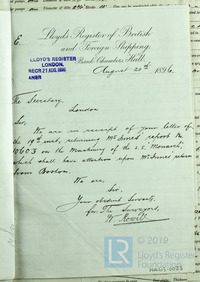 Lloyd's Register of British
and Foreign Shipping,
E.
Bank Chambers, Hull
LLOYD'S REGISTER
LONDON.
RECD 21 AUG. 1896
ANSR
August 20th 1896.
The Secretary,
London
Sir,
We are in receipt of your letter of
the 19th inst, returning Mr report No
10603 on the Machinery of the S.S. Monarch,
which shall have attention upon Mr return
from Boston.
We are,
Sir,
Your obedient Servants,
for The Surveyors,
© 2019
Lloyd's Register
Foundation